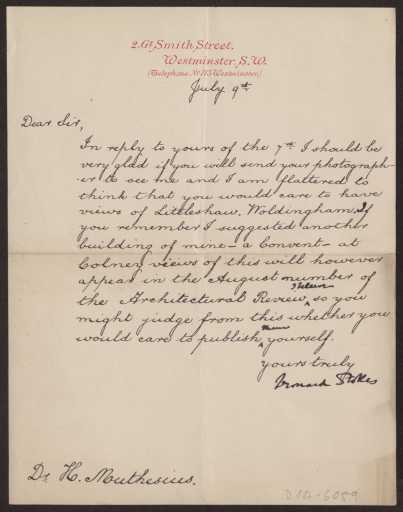 2. Gt Smith Street.
Westminster, S.W.
(Telephone No 115 Westminster)
July 9th
Dear Sir,
In reply to yours of the 7th I should be
very glad if you will send your photograph-
er to see me and I am flattered to
think that you would care to have
views of Littleshaw, Woldingham. If
you remember I suggested another
building of mine - a Convent - at
Colney views of this will however
appear in the August number of
the Architectural Review, I believe so you
might judge from this whether you
would care to publish them yourself.
yours truly
Leonard Stokes
Dr H. Muthesius.
D 102-6089